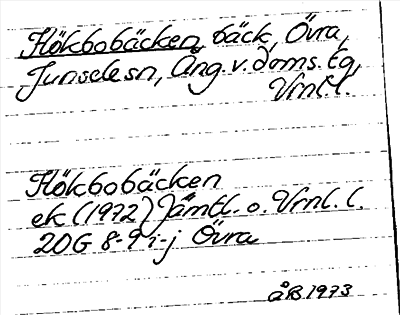 Flökbobäcken, bäck, Övra,
Junselesn, Ång. v. doms. tg,
Vrnl. l.
Flökbobäcken
ek (1972) Jämtl. o. Vrnl. l.
20G 8-9 i-j Övra
ÅB 1973